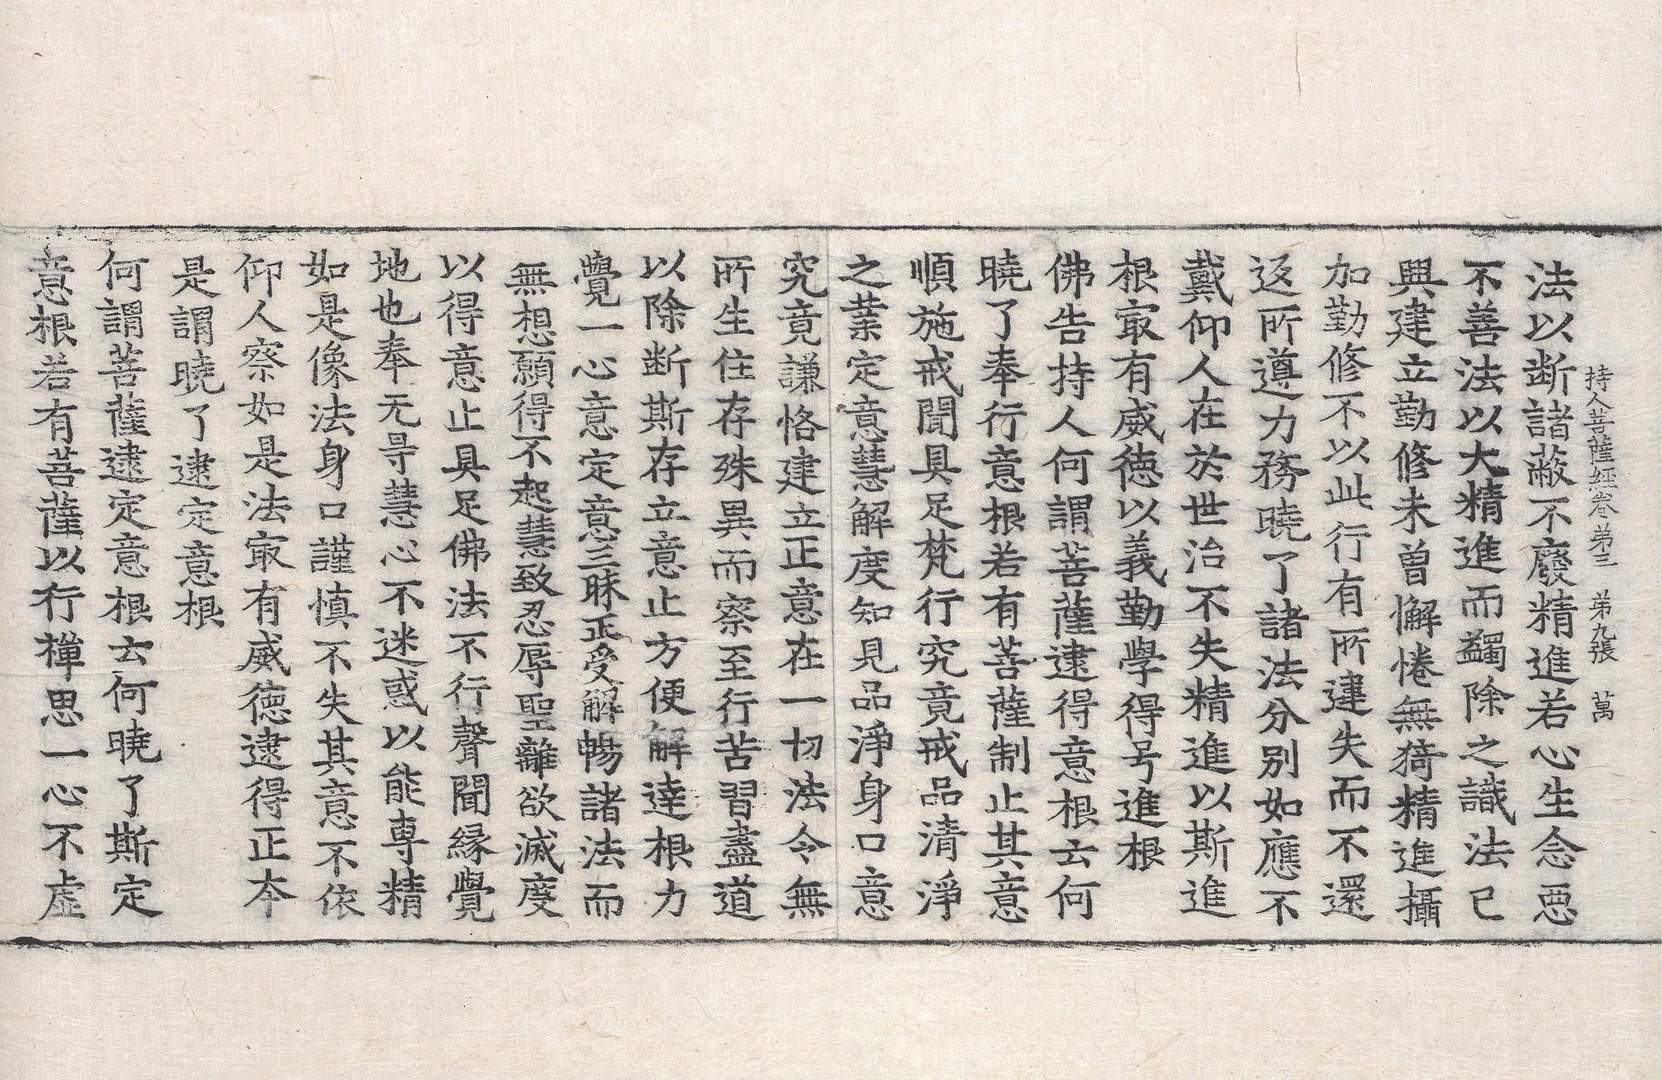 持人菩薩經卷弟三　弟九張　萬
法以断諸蔽不廢精進若心生念惡
不善法以大精進而蠲除之識法已
興建立勤修未曾懈惓無猗精進攝
加勤修不以此行有所違失而不還
返所遵力務曉了諸法分别如應不
戴仰人在於世治不失精進以斯進
根㝡有威徳以義勤學得号進根
佛告持人何謂菩薩逮得意根云何
曉了奉行意根若有菩薩制止其意
順施戒聞具足梵行究竟戒品清淨
之業定意慧解度知見品淨身口意
究竟謙恪建立正意在一切法令無
所生住存殊異而察至行苦習盡道
以除断斯存立意止方便解達根力
覺一心意定意三昧正受解暢諸法而
無想願得不起慧致忍辱聖離欲滅度
以得意止具足佛法不行聲聞緣覺
地也奉无㝵慧心不迷惑以能専精
如是像法身口謹慎不失其意不依
仰人察如是法㝡有威徳逮得正夲
是謂曉了逮定意根
何謂菩薩逮定意根云何曉了斯定
意根若有菩薩以行禪思一心不虛